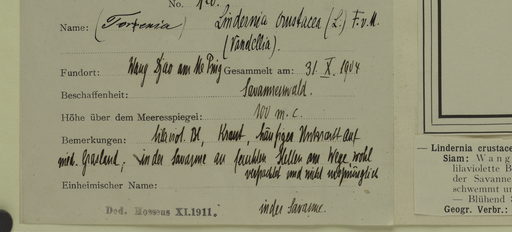 No.
Name: (Torenia) Lindernia crustacea (L.) F.v.M.
(Vandellia).
Fundort: Wang Djao am Me Ping Gesammelt am: 31. X. 1904
Beschaffenheit: Savannenwald.
Höhe über dem Meeresspiegel: 100 m. c.
Bemerkungen: lilaviol. Bl, Kraut, häufiges Unkraut auf
Grasland, in der Savanne an feuchten Stellen am Wege wohl
verschleppt und nicht ursprünglich
Einheimischer Name:
in der Savanne.
Ded. Hosseus XI.1911.
— Lindernia crustace
Siam: Wang
lilaviolette B
der Savanne
schwemmt un
— Blühend
Geogr. Verbr.: